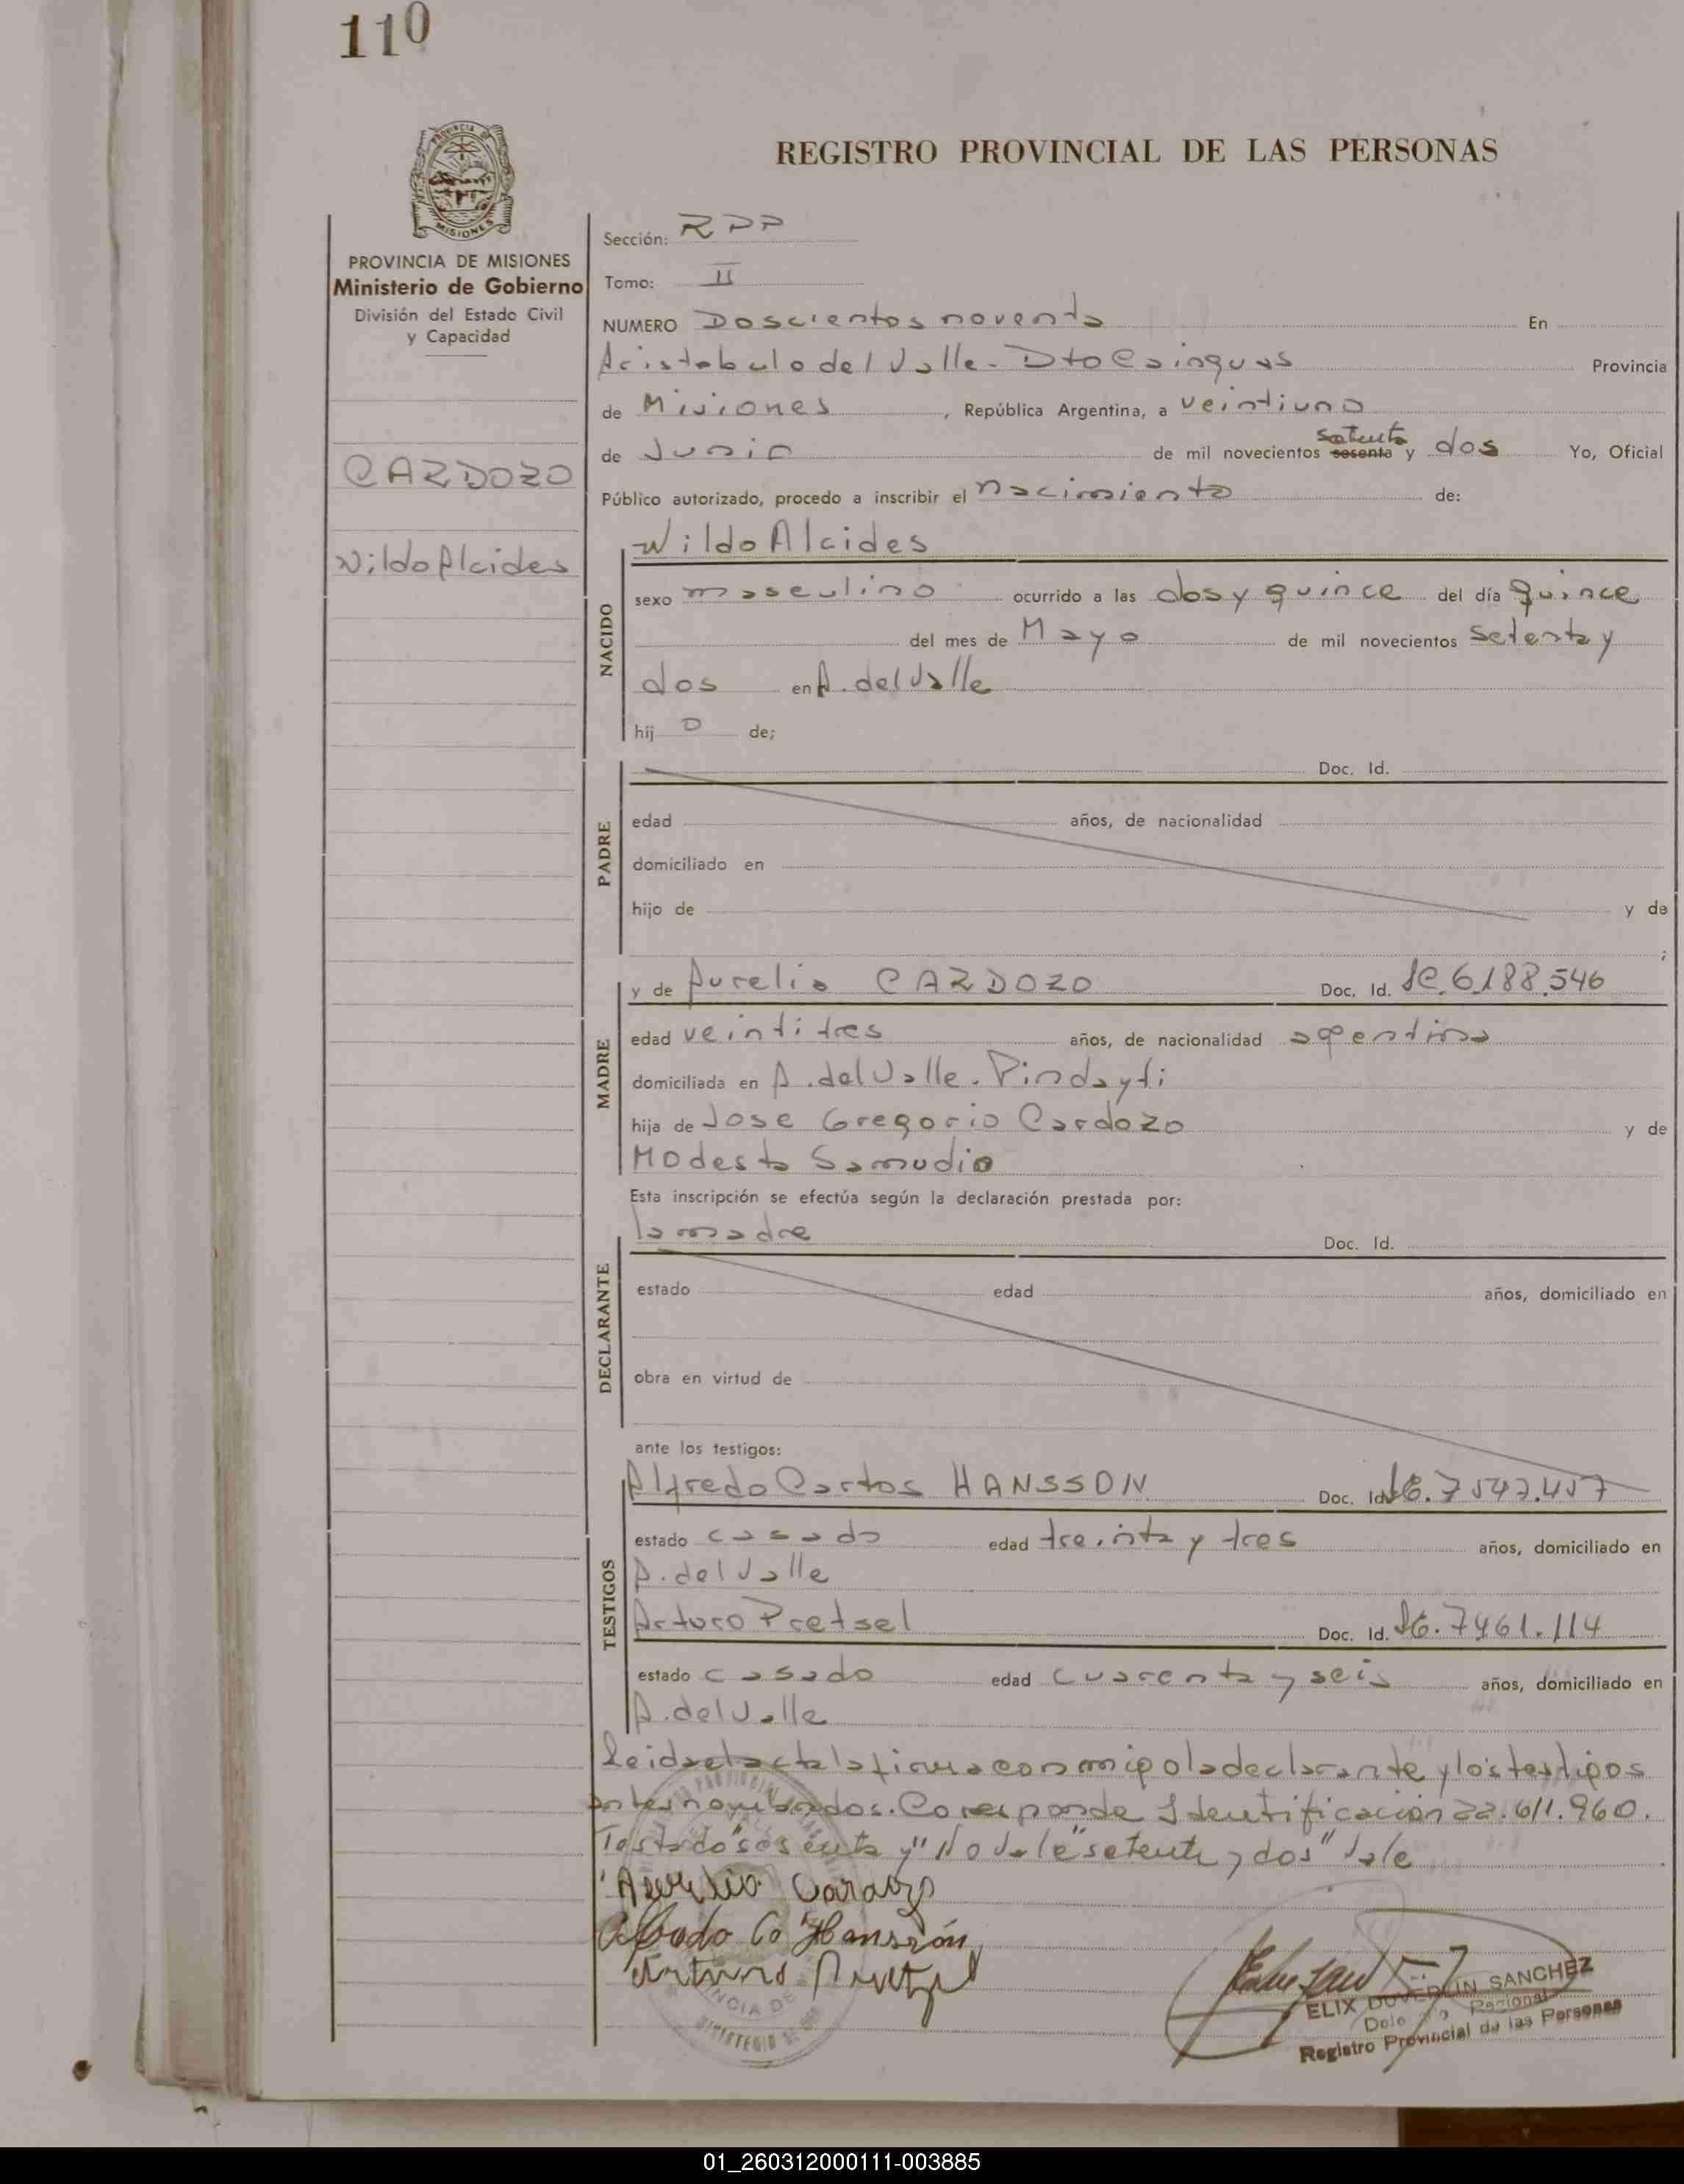 110
PROVINCIA DE
MISIONES
REGISTRO PROVINCIAL DE LAS PERSONAS
PROVINCIA DE MISIONES
Ministerio de Gobierno
División del Estado Civil
y Capacidad
CARDOZO
Wildo Alcides
Sección: RPP
Tomo: II
NUMERO Doscientos noventa En
Aristobulo del Valle - Dto Cainguas Provincia
de Misiones, República Argentina, a veintiuno
de Junio de mil novecientos sesenta setenta y dos Yo, Oficial
Público autorizado, procedo a inscribir el nacimiento de:
NACIDO
Wildo Alcides
sexo masculino ocurrido a las dos y quince del día quince
del mes de Mayo de mil novecientos setenta y
dos en A. del Valle
hij o de;
PADRE
Doc. Id.
edad años, de nacionalidad
domiciliado en
hijo de y de
;
MADRE
y de Aurelia CARDOZO Doc. Id. LC. 6.188.546
edad veintitres años, de nacionalidad argentina
domiciliada en A. del Valle. Pindayti
hija de Jose Gregorio Cardozo y de
Modesta Samudio
Esta inscripción se efectúa según la declaración prestada por:
DECLARANTE
la madre Doc. Id.
estado edad años, domiciliado en
obra en virtud de
ante los testigos:
TESTIGOS
Alfredo Carlos HANSSON Doc. Id.
estado casado edad treinta y tres años, domiciliado en
A. del Valle
Arturo Pretsel Doc. Id. 7461.114
estado casado edad cuarenta y seis años, domiciliado en
A. del Valle
Leida el acta la firma conmigo la declarante y los testigos
antes nombrados. Corresponde Identificación 22.611.960.
Testado "sesenta y" No vale "setenta y dos" Vale
Aurelia Cardozo
Alfredo C. Hansson
Arturo Pretzel
ELIX DUVERLIN SANCHEZ
Registro Provincial de las Personas
01_260312000111-003885